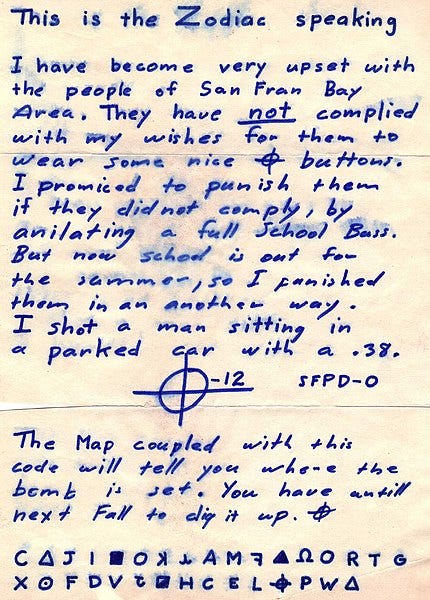 This is the Zodiac speaking
I have become very upset with
the people of San Fran Bay
Area. They have not complied
with my wishes for them to
wear some nice ⌖ buttons.
I promiced to punish them
if they did not comply, by
anilating a full School Buss.
But now school is out for
the summer, so I punished
them in an another way.
I shot a man sitting in
a parked car with a .38.
⌖-12 SFPD-0
The Map coupled with this
code will tell you where the
bomb is set. You have antill
next Fall to dig it up. ⌖
C Δ J I ■ O ꓘ ⅄ A M ꟻ ▲ Ω O R T G
X ⊙ F D V ⱹ ◪ H C E L ⌖ P W Δ